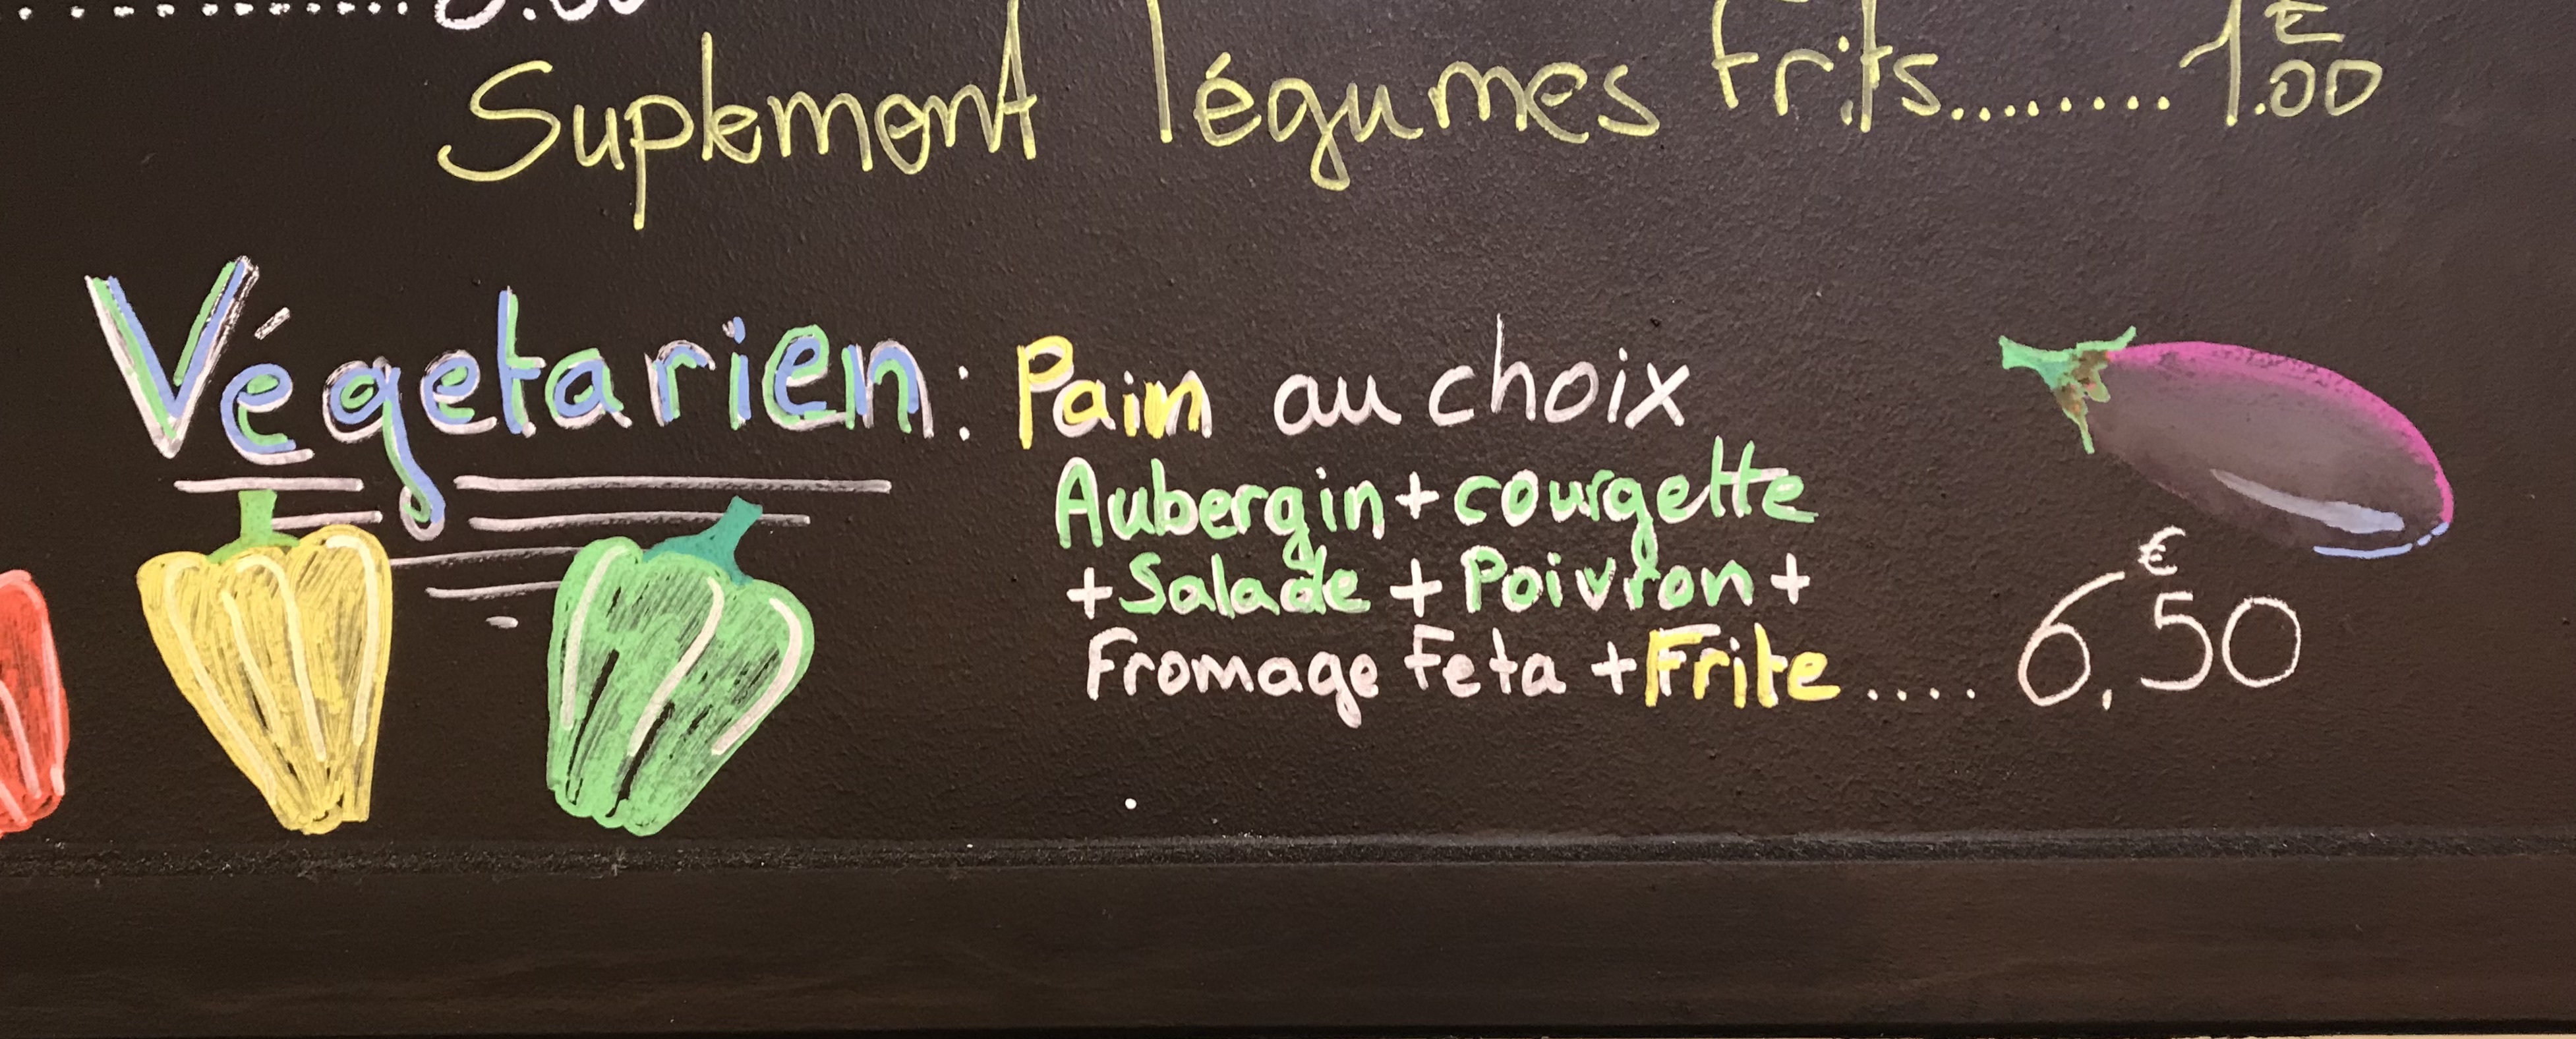 Suplement légumes frits........1€.00
Végetarien : Pain au choix
Aubergin + courgette
+ Salade + Poivron +
Fromage Feta + Frite.... 6,50€